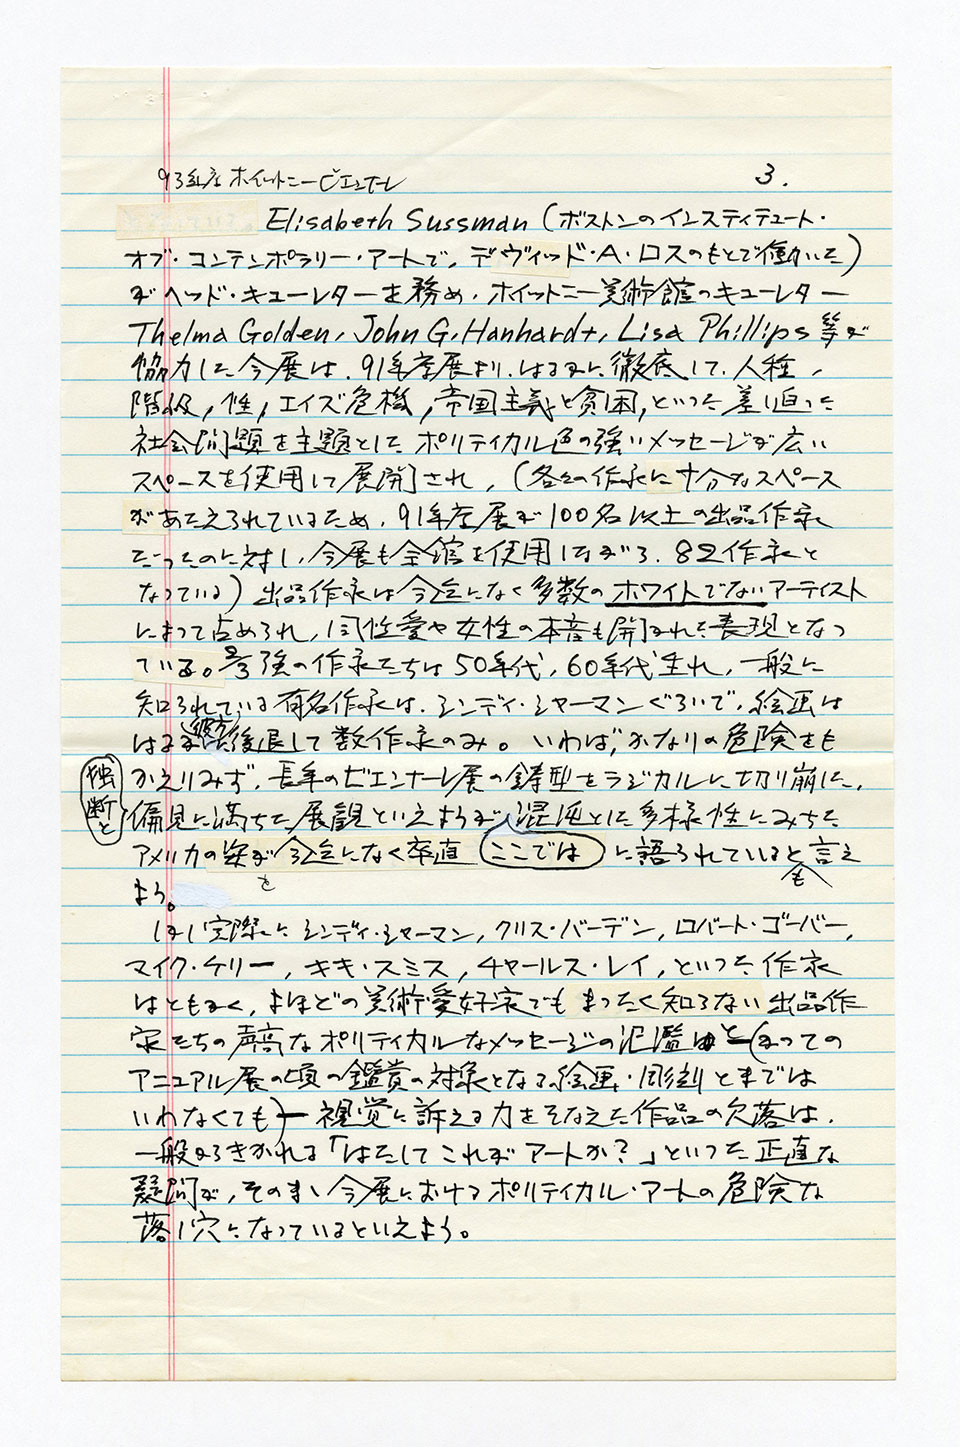 93年度 ホイットニービエンナーレ 3.
Elisabeth Sussman (ボストンのインスティテュート・
オブ・コンテンポラリー・アートで、デヴィッド・A・ロスのもとで働いた)
がヘッド・キューレターを務め、ホイットニー美術館のキューレター
Thelma Golden, John G. Hanhardt, Lisa Phillips 等が
協力した今展は、91年度展より、はるかに徹底して、人種、
階級、性、エイズ危機、帝国主義と貧困、といった差し迫った
社会問題を主題とした ポリティカル色の強いメッセージが広い
スペースを使用して展開され、(各々の作家に十分なスペース
があたえられているため、91年度展が100名以上の出品作家
だったのに対し、今展も全館を使用しながら、82作家と
なっている) 出品作家は今迄になく多数のホワイトでないアーティスト
によって占められ、同性愛や女性の本音も開かれた表現となっ
ている。2/3強の作家たちは50年代、60年代生れ、一般に
知られている有名作家は、シンディ・シャーマンぐらいで、絵画は
はるか彼方に後退して数作家のみ。いわば、かなりの危険をも
かえりみず、長年のビエンナーレ展の鋳型をラジカルに切り崩した、
独断と
偏見に満ちた展観といえようが、混沌とした多様性にみちた
アメリカの姿が今迄になく率直 ここでは に語られていると言え
を も
よう。
しかし実際には シンディ・シャーマン、クリス・バーデン、ロバート・ゴーバー、
マイク・ケリー、キキ・スミス、チャールス・レイ、といった作家
はともかく、よほどの美術愛好家でもまったく知らない出品作
家たちの声高なポリティカルなメッセージの氾濫と(かつての
アニュアル展の頃の鑑賞の対象となる絵画・彫刻とまでは
いわなくても)視覚に訴える力をそなえた作品の欠落は、
一般からきかれる「はたしてこれがアートか?」といった正直な
疑問が、そのまゝ今展におけるポリティカル・アートの危険な
落し穴になっているといえよう。